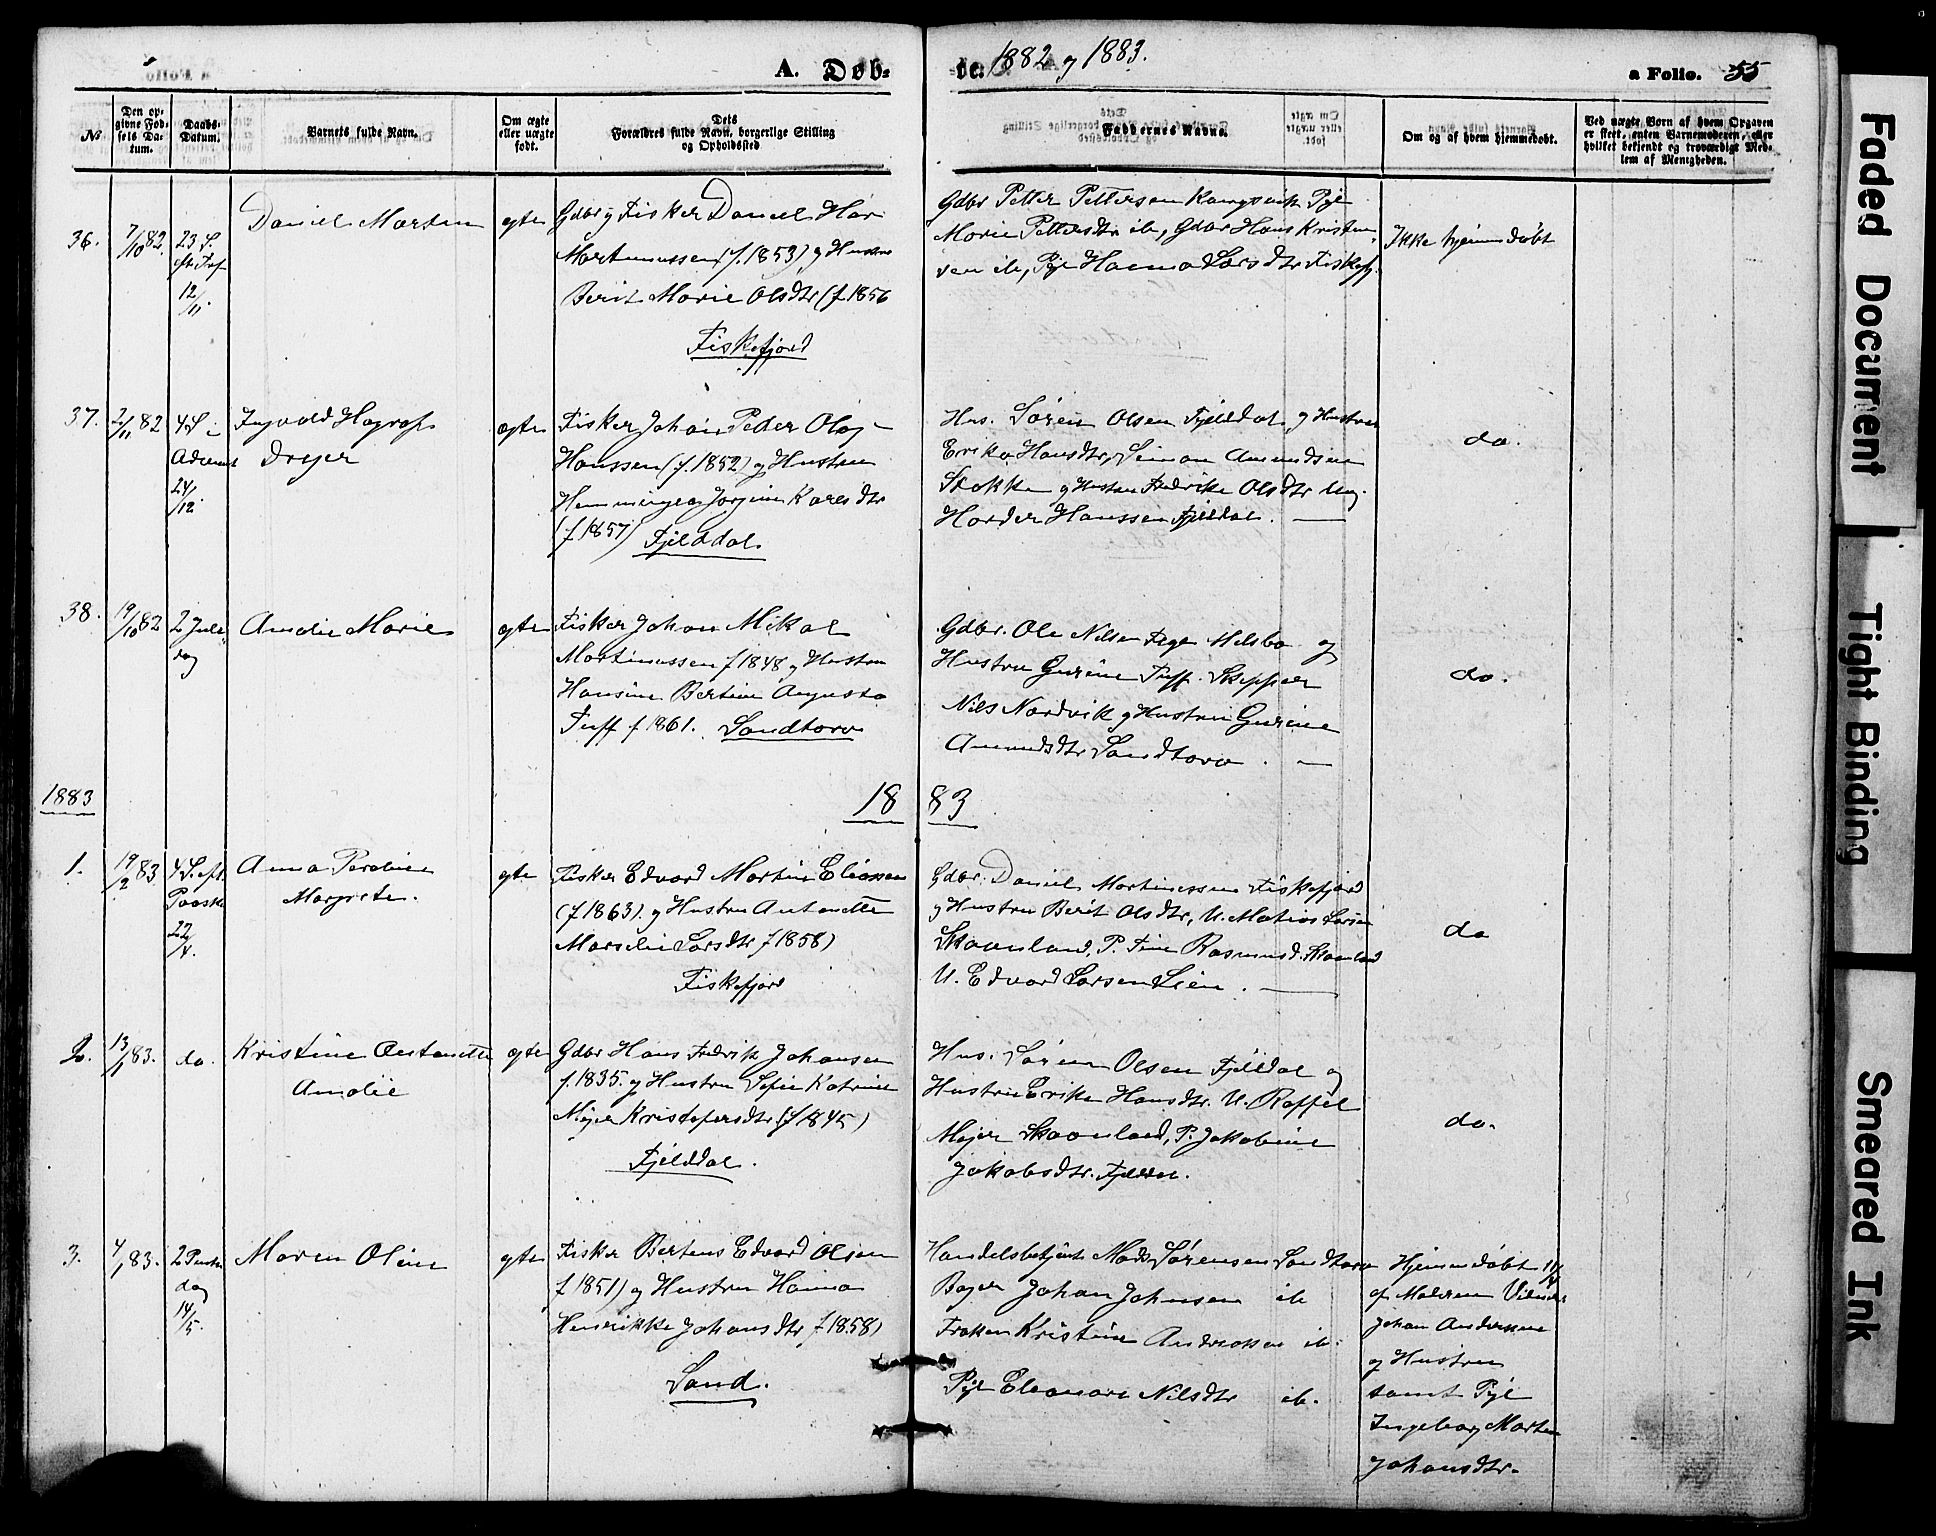 A. Døb-
de. 1882 og 1883.
a Folio. 55
No
Den opgivne Fødsels Datum.
Daabs-Datum.
Barnets fulde Navn.
Om ægte eller uægte født.
Dets Forældres fulde Navn, borgerlige Stilling og Opholdssted
Faddernes Navne.
Om og af hvem hjemmedøbt.
Ved uægte Børn af hvem Opgaven er skeet, enten Barnemoderen, eller hvilket bekjendt og troværdigt Medlem af Menigheden.
36.
7/10 82.
23 S.
eft. Tref
12/11.
Daniel Martin
ægte
Gdbr og Fisker Daniel
Martinussen (f. 1853) og Hustru
Berit Marie Olsdtr (f 1856
Fiskefjord
Gdbr Petter Pettersen Kongsvik Pge
Marie Pettersdtr ib, Gdbr Hans Kristen
sen ib, Pge Hanna Larsdtr Fiskefj.
Ikke hjemmedøbt
37.
2/11 82
4 S i
Advent
24/12.
Ingvald Hagrop
Dreyer
ægte
Fisker Johan Peder Olai
Hanssen (f. 1852) og Hustru
Henningea Jørgine Karlsdtr
(f 1857) Fjelddal.
Hus. Søren Olsen Fjelddal og Hustru
Erika Hansdtr, Simon Amundsen
Stokke og Hustru Fredrikke Olsdtr Ung.
Harder Hanssen Fjelddal.
do.
38.
19/10 82
2 Jule
dag
Amalie Marie
ægte
Fisker Johan Mikal
Martinussen f 1848 og Hustru
Hansine Bertine Augusta
Tuff f 1861. Sandtorv
Gdbr. Ole Nilsen og
Hustru Gurine Tuff. Skipper
Nils Nordvik og Hustru Gurine
Amundsdtr Sandtorv.
do.
1883
18 83
1.
19/2 83
4 S. eft.
Paaske
22/4.
Anna Peroline
Margrete.
ægte
Fisker Edvard Martin Eliassen
(f 1863). og Hustru Antonette
Marselie Larsdtr f 1858)
Fiskefjord
Gdbr. Daniel Martinussen Fiskefjord
og Hustru Berit Olsdtr, U. Matias Larsen
Skaanland, P. Tine Rasmusd. Skaanland
U. Edvard Larsen Lien.
do
2.
13/1 83.
do.
Kristine Antonette
Amalie
ægte
Gdbr Hans Fredrik Johansen
f. 1835. og Hustru Sofie Katrine
Mejer Kristofersdtr (f 1845)
Fjelddal.
Hus. Søren Olsen Fjelddal og
Hustru Erika Hansdtr. U. Roffel
Mejer Skaanland, P. Jakobine
Jakobsdtr. Fjelddal.
do.
3.
4/1 83.
2 Pintse
dag
14/5.
Maren Oline
ægte
Fisker Bertens Edvard Olsen
f 1851) og Hustru Hanna
Henrikke Johansdtr f 1858)
Sand.
Handelsbetjent Mads Sørensen Sandtorv
Bager Johan Johnsen ib
Frøken Kristine Andreasen ib.
Pge Eleonore Nilsdtr ib.
Hjemmedøbt 11/1
af Moderen Vidner
Johan Andersen
og Hustru
samt Pge
Ingeborg Marten
Johansdtr.
Faded Document
Tight Binding
Smeared Ink